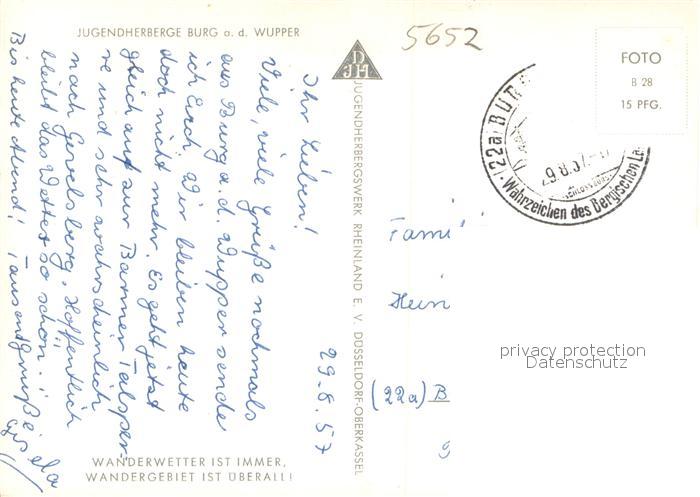 JUGENDHERBERGE BURG a. d. WUPPER
5652
DJH
JUGENDHERBERGSWERK RHEINLAND E. V. DÜSSELDORF-OBERKASSEL
FOTO
B 28
15 PFG.
(22a) BUR
29.8.57
Wahrzeichen des Bergischen La
29.8.57
Ihr Lieben!
Viele, viele Grüße nochmals
aus Burg a. d. Wupper sende
ich Euch. Wir bleiben heute
doch nicht mehr. Es geht jetzt
gleich auf zur Barmer Talsper-
re und sehr wahrscheinlich
nach Gevelsberg. Hoffentlich
bleibt das Wetter so schön.
Bis heute Abend! Tausend Grüße
Gisela
Fami
Hein
(22a) B
g
privacy protection
Datenschutz
WANDERWETTER IST IMMER,
WANDERGEBIET IST ÜBERALL!